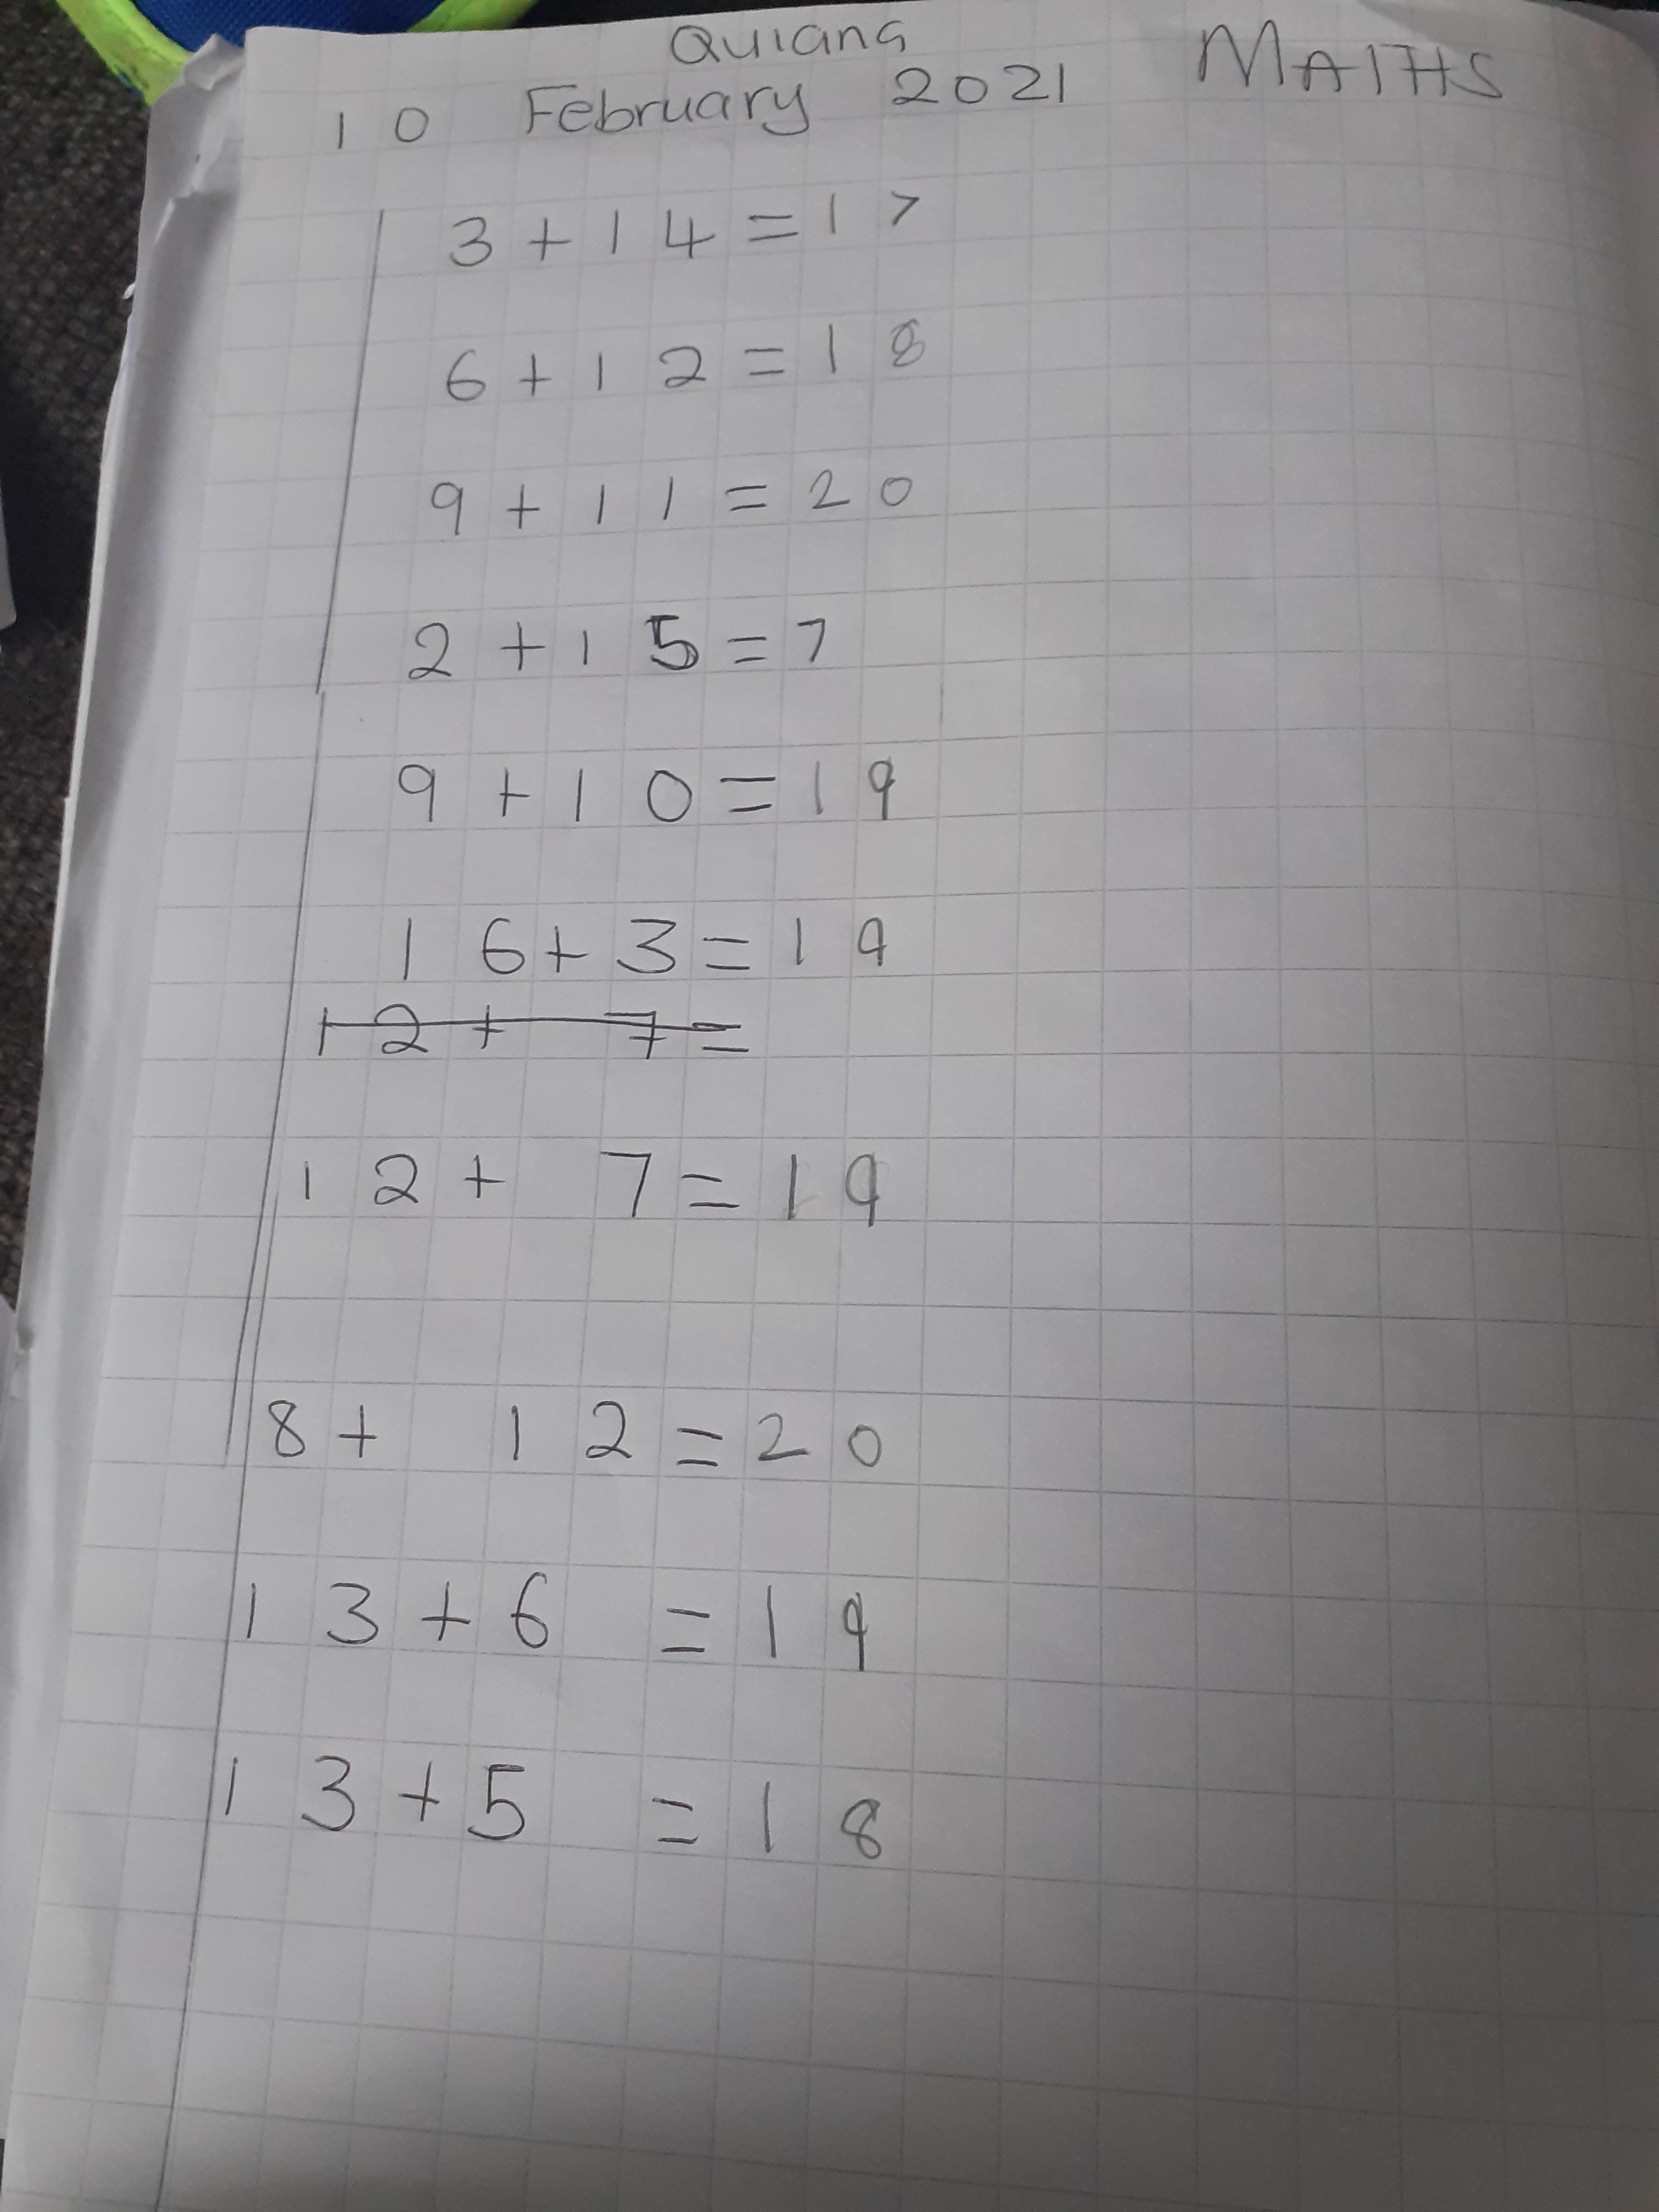 Quiana
10 February 2021 MATHS
3+14=17
6+12=18
9+11=20
2+15=7
9+10=19
16+3=19
12+ 7=
12+ 7=19
8+ 12=20
13+6 =19
13+5 =18